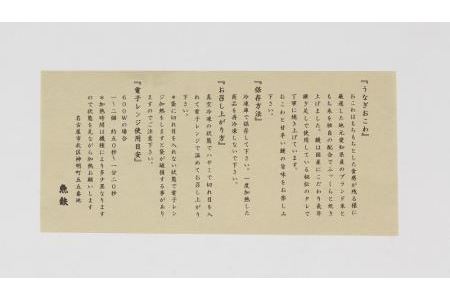 『うなぎおこわ』
おこわはもちもちとした食感が残る様に
厳選した地元愛知県産のブランド米と
もち米を独自の配合でふっくらと炊き
上げました。鰻は国産にこだわり長年
継ぎ足しで使用している秘伝のタレで
丁寧に焼き上げています。
おこわと甘辛い鰻の旨味をお楽しみ
下さい。
『保存方法』
冷凍庫で保存して下さい。一度加熱した
商品を再冷凍しないで下さい。
『お召し上がり方』
真空冷凍の状態で、ハサミで切れ目を入
れて電子レンジで温めてお召し上がり
下さい。
＊袋に切れ目を入れない状態で電子レン
ジ加熱をしますと袋が破損する事があり
ますのでご注意下さい。
『電子レンジ使用目安』
600Wの場合
一〜二個 約五〇秒〜一分二〇秒
＊加熱時間は機種により多少異なります
ので状態を見ながら加熱お願いします
名古屋市北区神明町五五番地
魚鉄